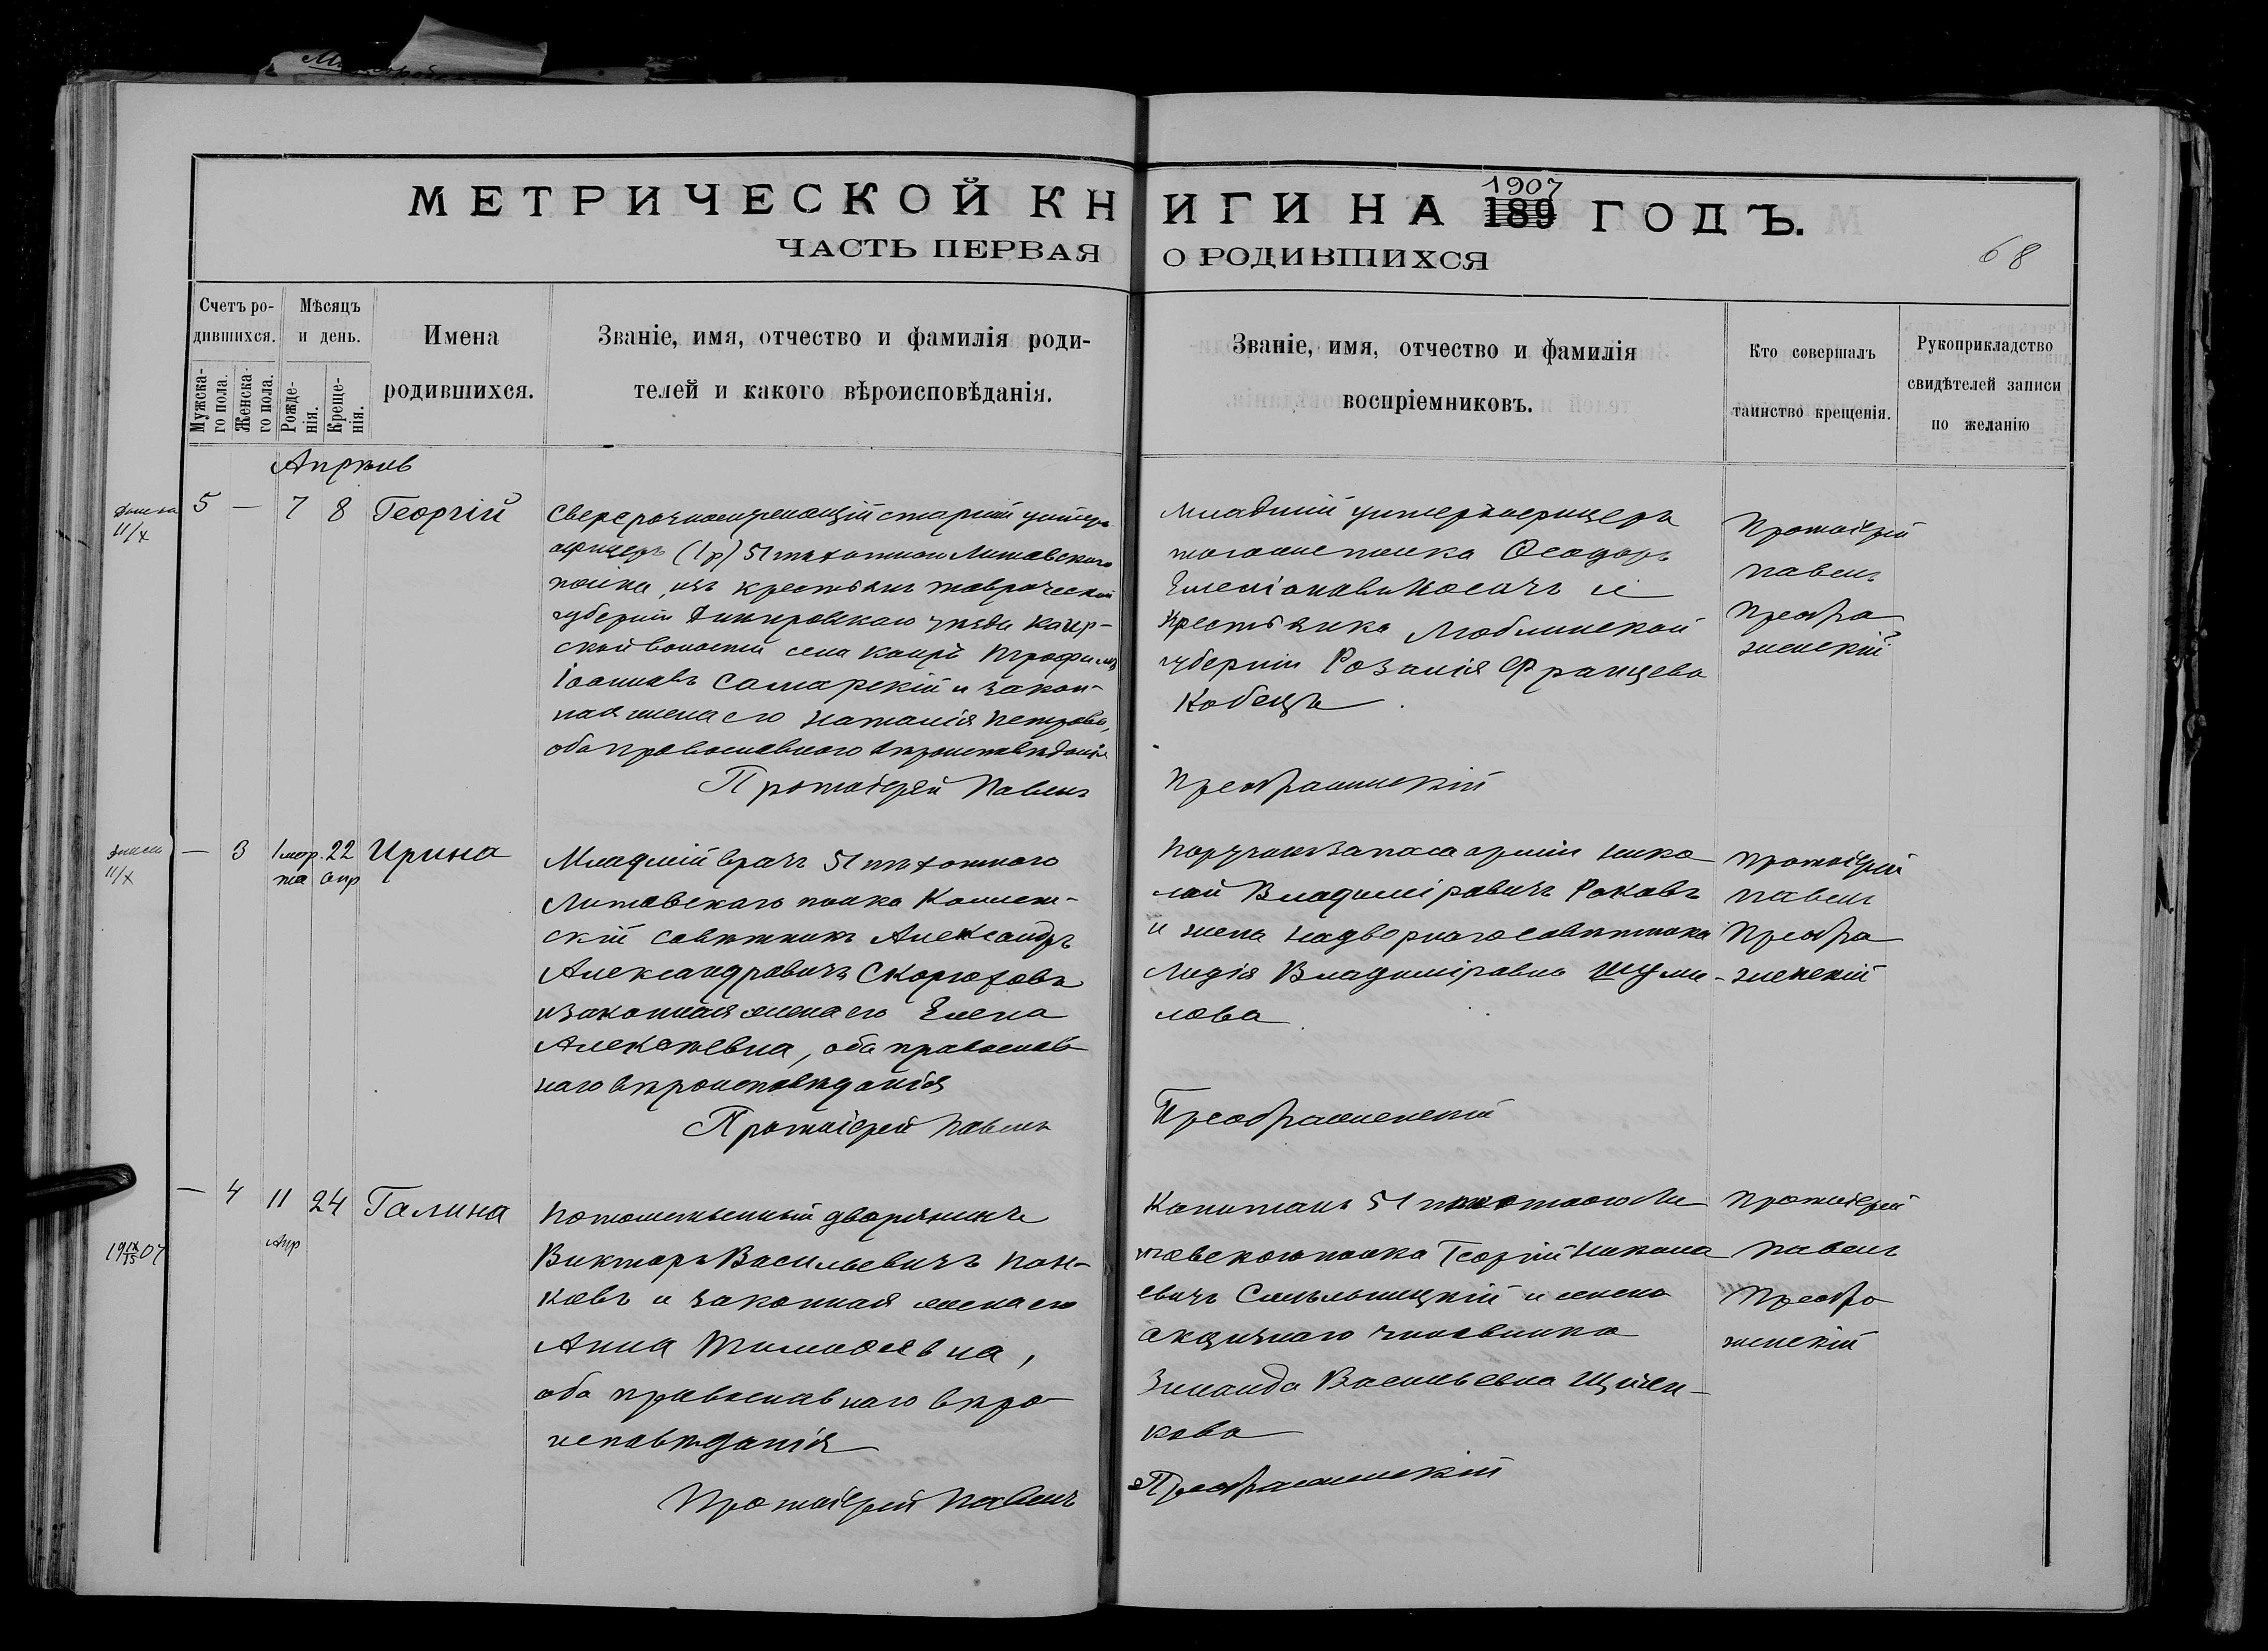 МЕТРИЧЕСКОЙ КНИГИ НА 1907 189 ГОДЪ.
ЧАСТЬ ПЕРВАЯ О РОДИВШИХСЯ
68
Счетъ ро-
дившихся.
Мужска-
го пола.
Женска-
го пола.
Мѣсяцъ
и день.
Рожде-
нія.
Креще-
нія.
Имена
родившихся.
Званіе, имя, отчество и фамилія роди-
телей и какого вѣроисповѣданія.
Званіе, имя, отчество и фамилія
воспріемниковъ.
Кто совершалъ
таинство крещенія.
Рукоприкладство
свидѣтелей записи
по желанію
Апрѣль
11/X
5 — 7 8 Георгій
Сверсрочнослужащій старшій унтеръ
офицеръ (1 р) 51 пѣхотнаго Литовскаго
полка, изъ крестьянъ Таврической
губерніи Днѣпровскаго уѣзда Каир-
ской волости села Каиръ Трофимъ
Іоанновъ Самарскій и закон-
ная жена его Наталія Петрова,
оба православнаго вѣроисповѣданія
Протоіерей Павелъ
Младшій унтеръ офицеръ
тогоже полка Ѳеодоръ
Емеліановъ Носачъ и
крестьянка Люблинской
губерніи Розалія Францева
Кобецъ
Преображенскій
Протоіерей
Павелъ
Преобра
женскій
11/X
— 3 1 мар. 22 Ирина
та апр
Младшій врачъ 51 пѣхотнаго
Литовскаго полка Коллеж-
скій совѣтникъ Александръ
Александровичъ Скороховъ
и законная жена его Елена
Алексѣевна, оба православ
наго вѣроисповѣданія
Протоіерей Павелъ
Поручикъ запаса арміи Нико
лай Владиміровичъ Роковъ
и жена надворнаго совѣтника
Лидія Владиміровна Шуми-
лова
Преображенскій
Протоіерей
Павелъ
Преобра
женскій
19 IX/15 07
— 4 11 24 Галина
Апр
Потомственный дворянинъ
Викторъ Васильевичъ Пан-
ковъ и законная жена его
Анна Тимоѳеевна,
оба православнаго вѣро
исповѣданія
Протоіерей Павелъ
Капитанъ 51 пѣхотнаго Ли
товскаго полка Георгій Никола
евичъ и жена
акцизнаго чиновника
Зинаида Васильевна
кова
Преображенскій
Протоіерей
Павелъ
Преобра
женскій